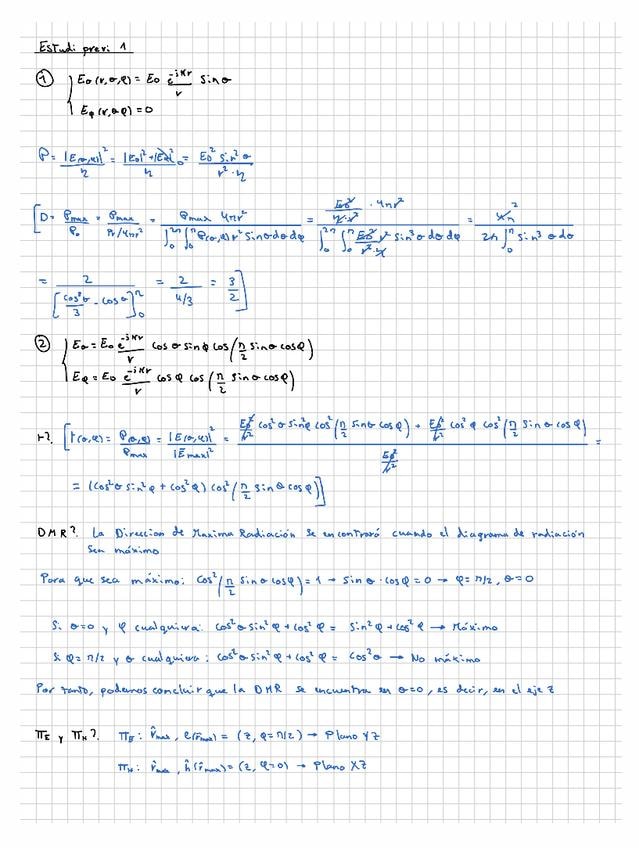 Estudi previ 1
① { Eθ(r,θ,φ) = E0 e^-jKr/r sinθ
Eφ(r,θ,φ) = 0
P = |E(θ,φ)|²/η = |Eθ|²+|Eφ|²/η = E0² sin²θ/r²·η
[D = Pmax/P0 = Pmax/Pr/4πr² = Pmax 4πr²/∫0^2π ∫0^π P(θ,φ) r² sinθ dθ dφ = E0²/η·r² · 4πr²/∫0^2π ∫0^π E0²/r²·η r² sin³θ dθ dφ = 4π/2π ∫0^π sin³θ dθ
= 2/[cos³θ/3 - cosθ]0^π = 2/4/3 = 3/2]
② { Eθ = E0 e^-jKr/r cosθ sinφ cos(π/2 sinθ cosφ)
Eφ = E0 e^-jKr/r cosφ cos(π/2 sinθ cosφ)
t?. [t(θ,φ) = P(θ,φ)/Pmax = |E(θ,φ)|²/|Emax|² = E0²/r² cos²θ sin²φ cos²(π/2 sinθ cosφ) + E0²/r² cos²φ cos²(π/2 sinθ cosφ)/E0²/r² =
= (cos²θ sin²φ + cos²φ) cos²(π/2 sinθ cosφ)]
DMR?. La Direccion de Maxima Radiación se encontrará cuando el diagrama de radiación
sea máximo
Para que sea máximo: cos²(π/2 sinθ cosφ) = 1 → sinθ·cosφ = 0 → φ = π/2, θ = 0
Si θ=0 y φ cualquiera: cos²θ sin²φ + cos²φ = sin²φ + cos²φ → Máximo
Si φ = π/2 y θ cualquiera: cos²θ sin²φ + cos²φ = cos²θ → No máximo
Por tanto, podemos concluir que la DMR se encuentra en θ=0, es decir, en el eje z
πE y πH?. πE: r̂max, ê(r̂max) = (z, φ=π/2) → Plano YZ
πH: r̂max, ĥ(r̂max) = (z, φ=0) → Plano XZ